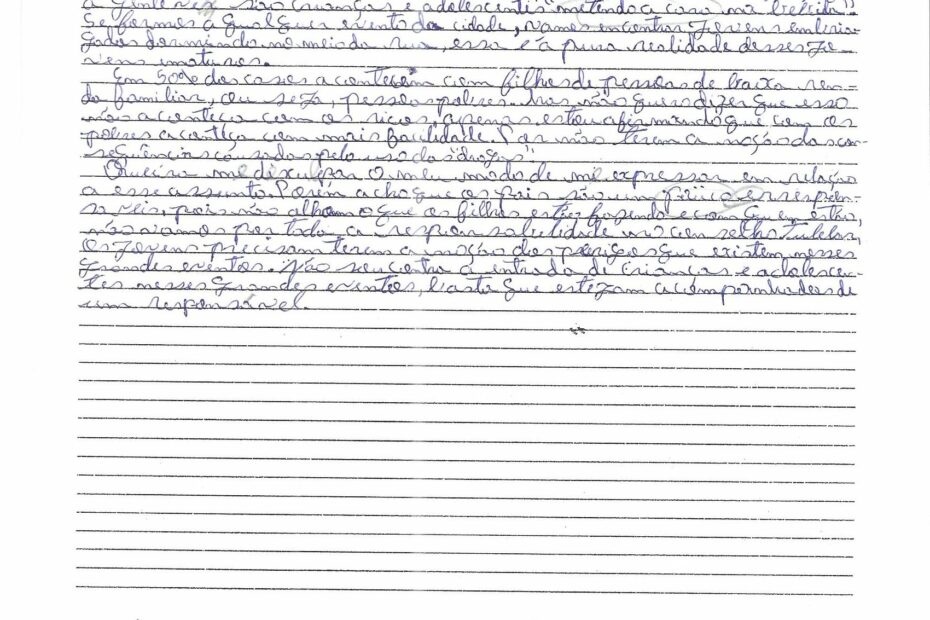 a gente vez são crianças e adolescentis "metendo a cara na bebida".
Se formos a qualquer evento da cidade, vamos encontrar jovens embria-
gados dormindo no meio da rua, essa é a pura realidade desses jo-
vens imaturos.
Em 50% dos casos acontecem com filhos de pessoas de baixa ren-
da familiar, ou seja, pessoas pobres. Mas, não quero dizer que esso
não aconteça com os ricos, apenas estou afirmando que com os
pobres acontece com mais facilidade. Por não terem a noção das con-
sequências causadas pelo uso das "drogas"
Queira me disculpar o meu modo de me expressar em relação
a esse assunto. Porém acho que os pais são um respon-
saveis, pois não olham o que os filhos estão fazendo e com quem estão,
não vamos por toda a responsabilidade no conselho tutelar,
os jovens precisam terem a noção dos perigos que existem nesses
grandes eventos. Não sou contra a entrada de crianças e adolescen-
tes nesses grandes eventos, basta que estejam acompanhados de
um responsável.